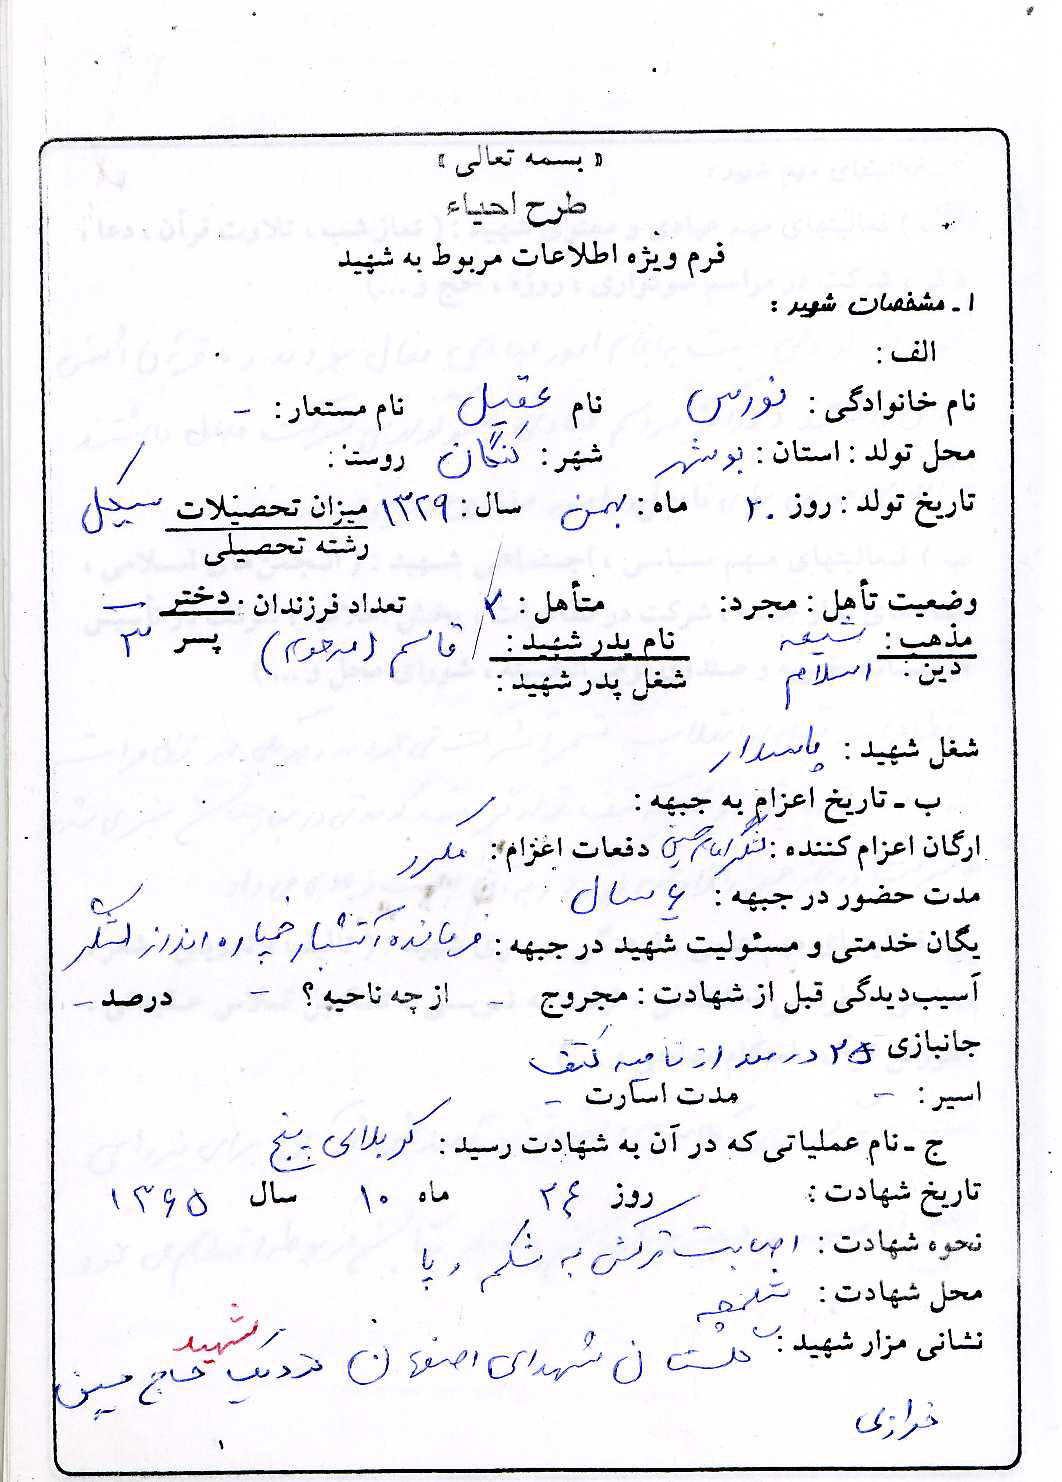 « بسمه تعالی »
طرح احیاء
فرم ویژه اطلاعات مربوط به شهید
۱ ـ مشخصات شهید :
الف :
نام خانوادگی : نورس نام عقیل نام مستعار : -
محل تولد : استان : بوشهر شهر : کنگان روستا :
تاریخ تولد : روز ۲۰ ماه : بهمن سال : ۱۳۲۹ میزان تحصیلات سیکل
رشته تحصیلی
وضعیت تأهل : مجرد: متأهل : تعداد فرزندان . دختر —
مذهب : شیعه نام پدر شهید : قاسم (مرحوم) پسر ۳
دین : اسلام شغل پدر شهید :
شغل شهید : پاسدار
ب ـ تاریخ اعزام به جبهه :
ارگان اعزام کننده : لشکر امام حسین دفعات اعزام : مکرر
مدت حضور در جبهه : ۶ سال
یگان خدمتی و مسئولیت شهید در جبهه : فرمانده آتشبار خمپاره انداز لشکر
آسیب‌دیدگی قبل از شهادت : مجروح - از چه ناحیه ؟ - درصد -
جانبازی ۲۵ درصد از ناحیه کتف
اسیر : - مدت اسارت -
ج ـ نام عملیاتی که در آن به شهادت رسید : کربلای پنج
تاریخ شهادت : روز ۲۴ ماه ۱۰ سال ۱۳۶۵
نحوه شهادت : اصابت ترکش به شکم و پا
محل شهادت : شلمچه
نشانی مزار شهید : گلستان شهدای اصفهان نزدیک شهید حاج حسین
خرازی
۱